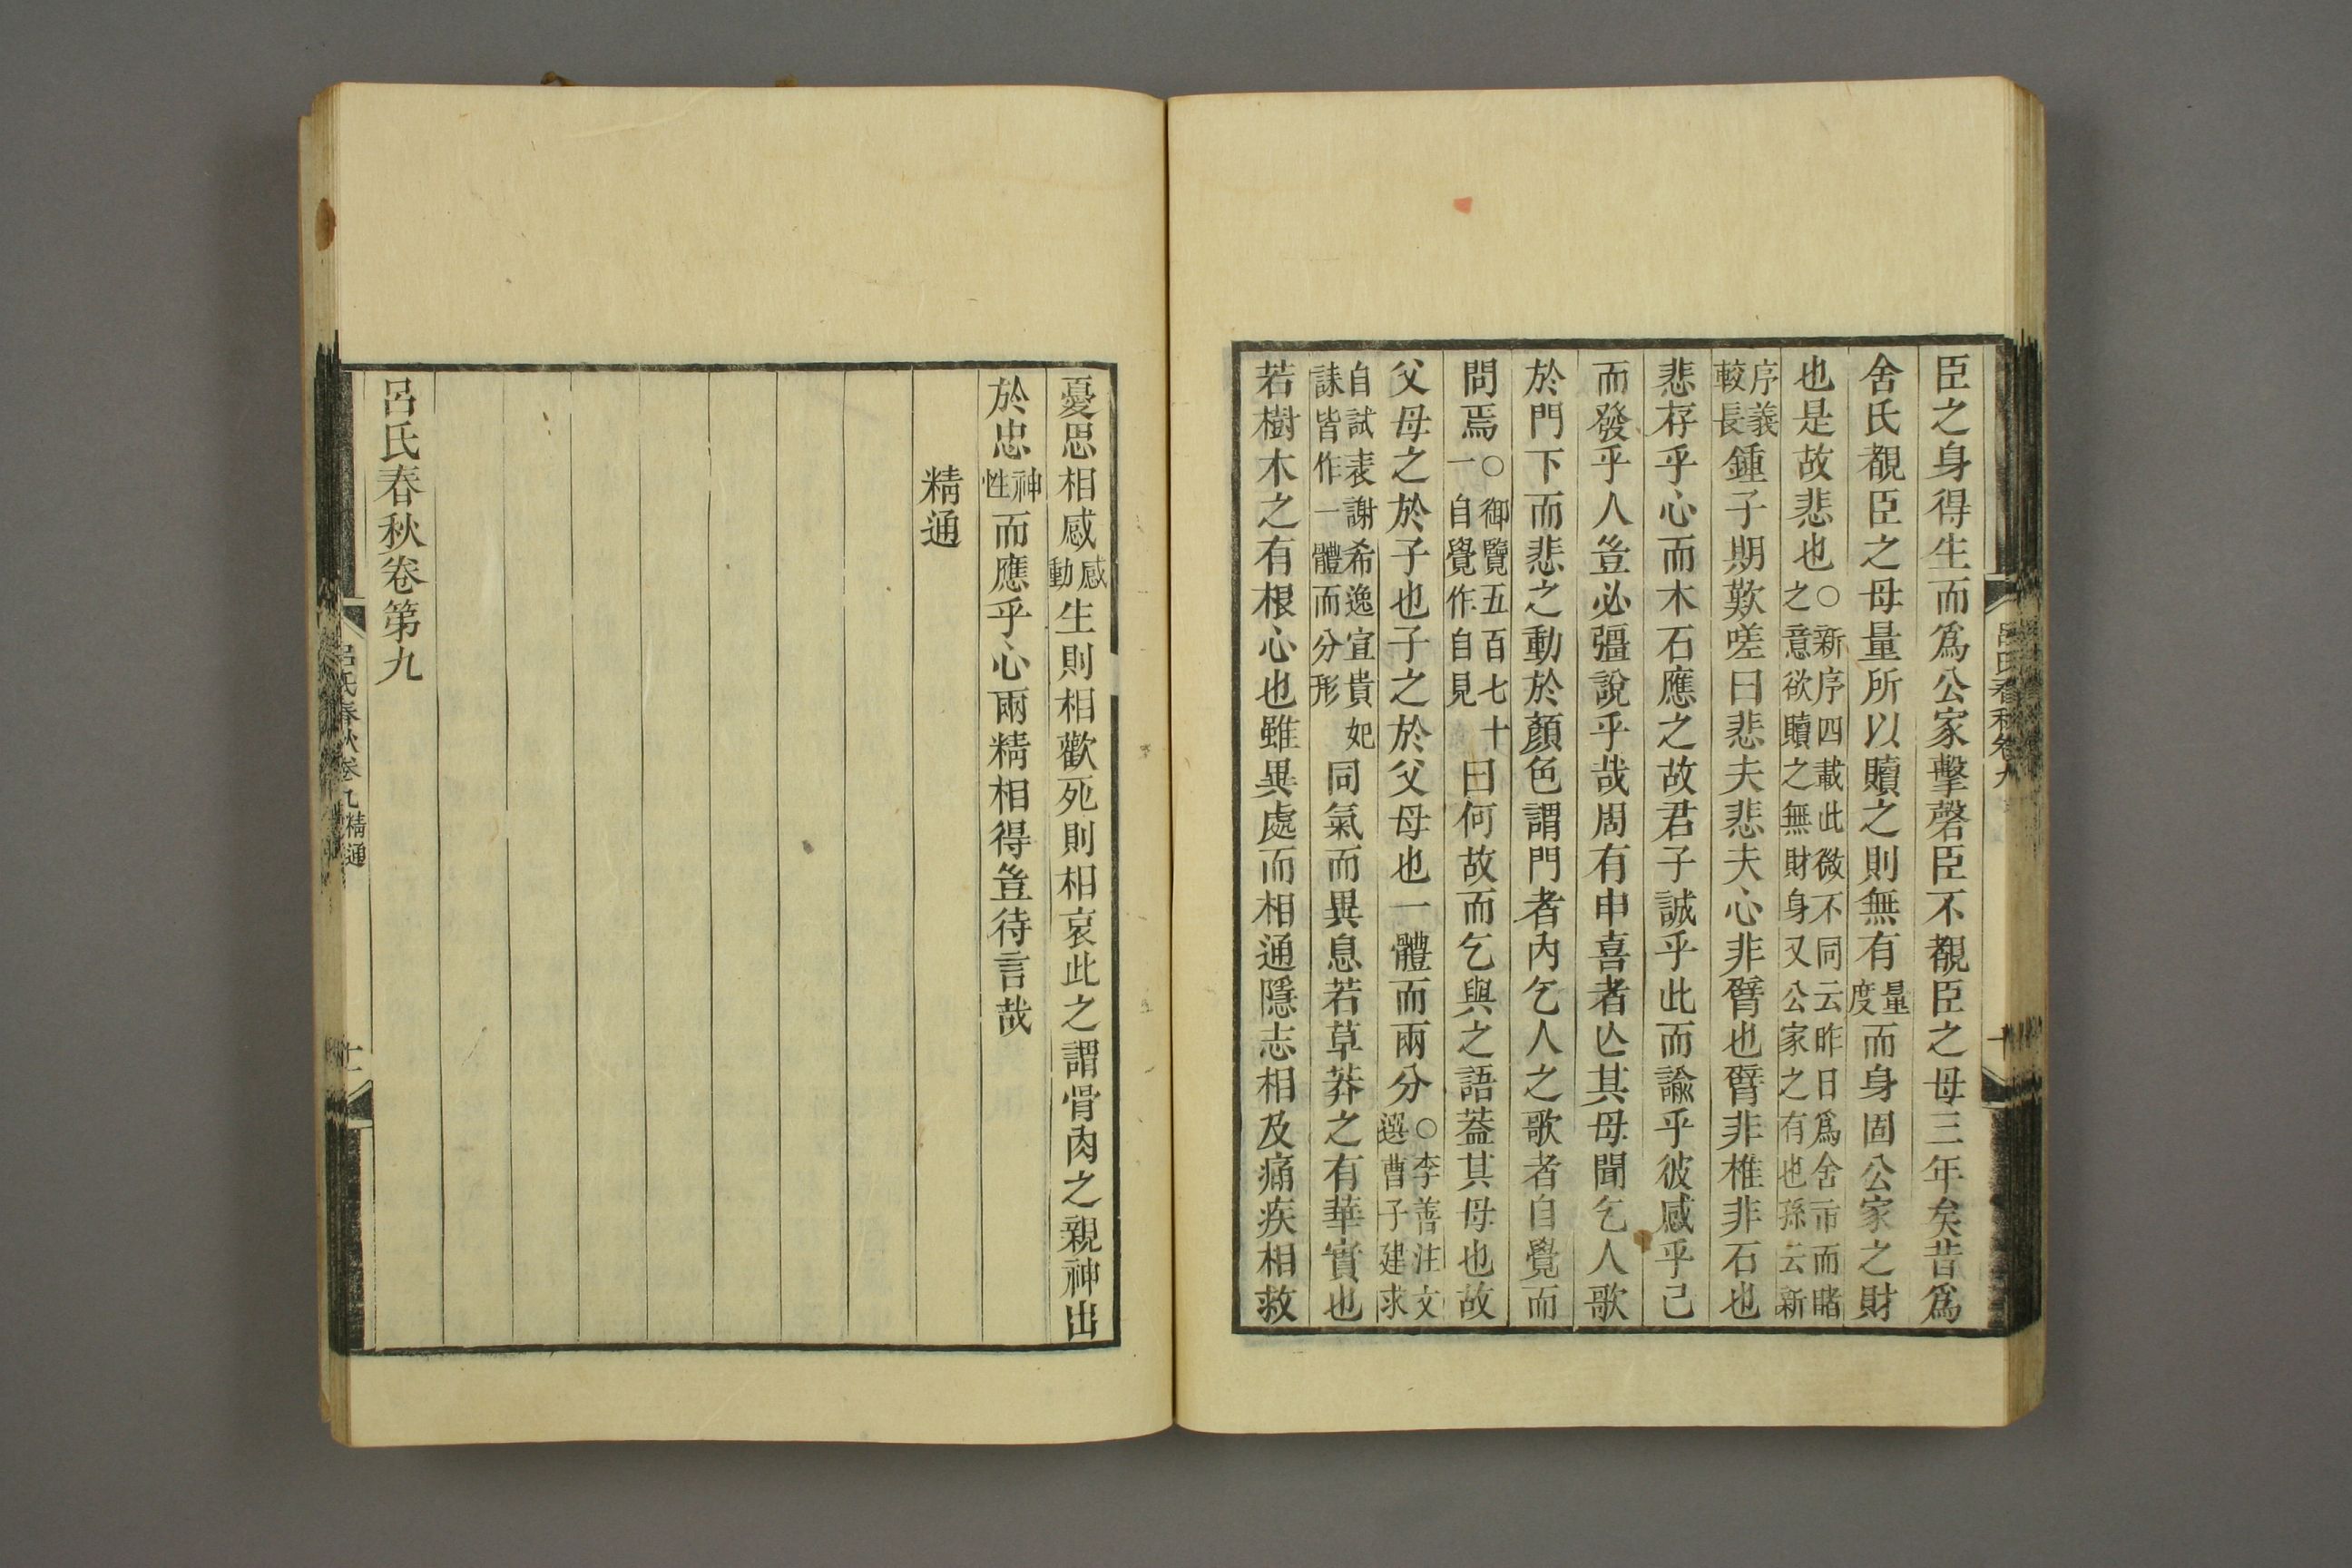 臣之身得生而爲公家擊磬臣不覩臣之母三年矣昔爲
舍氏覩臣之母量所以贖之則無有量度而身固公家之財
也是故悲也○新序四載此微不同云昨日爲舍市而睹之意欲贖之無財身又公家之有也孫云新
序義較長鍾子期歎嗟曰悲夫悲夫心非臂也臂非椎非石也
悲存乎心而木石應之故君子誠乎此而諭乎彼感乎己
而發乎人豈必彊說乎哉周有申喜者亾其母聞乞人歌
於門下而悲之動於顏色謂門者內乞人之歌者自覺而
問焉○御覽五百七十一自覺作自見曰何故而乞與之語蓋其母也故
父母之於子也子之於父母也一體而兩分○李善注文選曹子建求
自試表謝希逸宣貴妃誄皆作一體而分形同氣而異息若草莽之有華實也
若樹木之有根心也雖異處而相通隱志相及痛疾相救
憂思相感感動生則相歡死則相哀此之謂骨肉之親神出
於忠神性而應乎心兩精相得豈待言哉
精通
呂氏春秋卷第九
呂氏春秋卷九
十
呂氏春秋卷九精通
十一